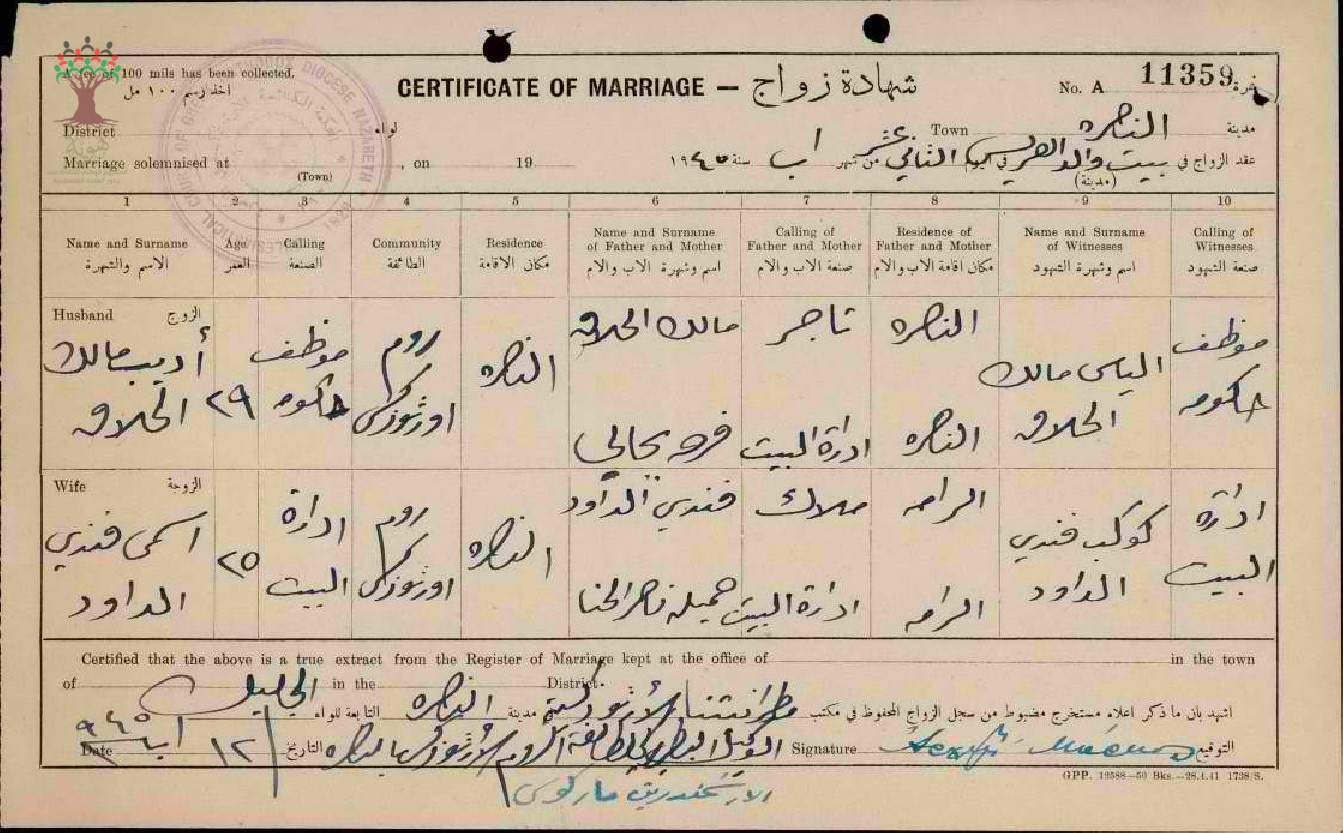 A fee of 100 mils has been collected.
اخذ رسم ١٠٠ مل
CERTIFICATE OF MARRIAGE — شهادة زواج
No. A 11359 نمرة
District لواء
Town الناصرة مدينة
Marriage solemnised at (Town), on 19
عقد الزواج في بيت والد العريس (مدينة) في اليوم الثاني عشر من شهر اب سنة ١٩٤٥
1 2 3 4 5 6 7 8 9 10
Name and Surname الاسم والشهرة
Age العمر
Calling الصنعة
Community الطائفة
Residence مكان الاقامة
Name and Surname of Father and Mother اسم وشهرة الاب والام
Calling of Father and Mother صنعة الاب والام
Residence of Father and Mother مكان اقامة الاب والام
Name and Surname of Witnesses اسم وشهرة الشهود
Calling of Witnesses صنعة الشهود
Husband الزوج
أديب مالك الحلاق
٢٩
موظف حكومه
روم اورثوذكس
الناصره
مالك الحلاق
تاجر
الناصره
فرحه
ادارة البيت
الناصره
الياس مالك الحلاق
موظف حكومه
Wife الزوجة
اسمى فندي الداود
٢٥
ادارة البيت
روم اورثوذكس
الناصره
فندي الداود
ملاك
الرامه
جميله ناصر الحنا
ادارة البيت
الرامه
كوكب فندي الداود
ادارة البيت
Certified that the above is a true extract from the Register of Marriage kept at the office of in the town
of in the District.
اشهد بان ما ذكر اعلاه مستخرج مضبوط من سجل الزواج المحفوظ في مكتب مطرانيتنا الأرثوذكسية مدينة الناصره التابعة للواء الجليل
Date ١٢ اب ٩٤٥ التاريخ
الوكيل البطريركي لطائفة الروم الأرثوذكس بالناصره
Signature التوقيع
الارشمندريت ماركوس
GPP. 12588—50 Bks.—28.4.41 1738/S.